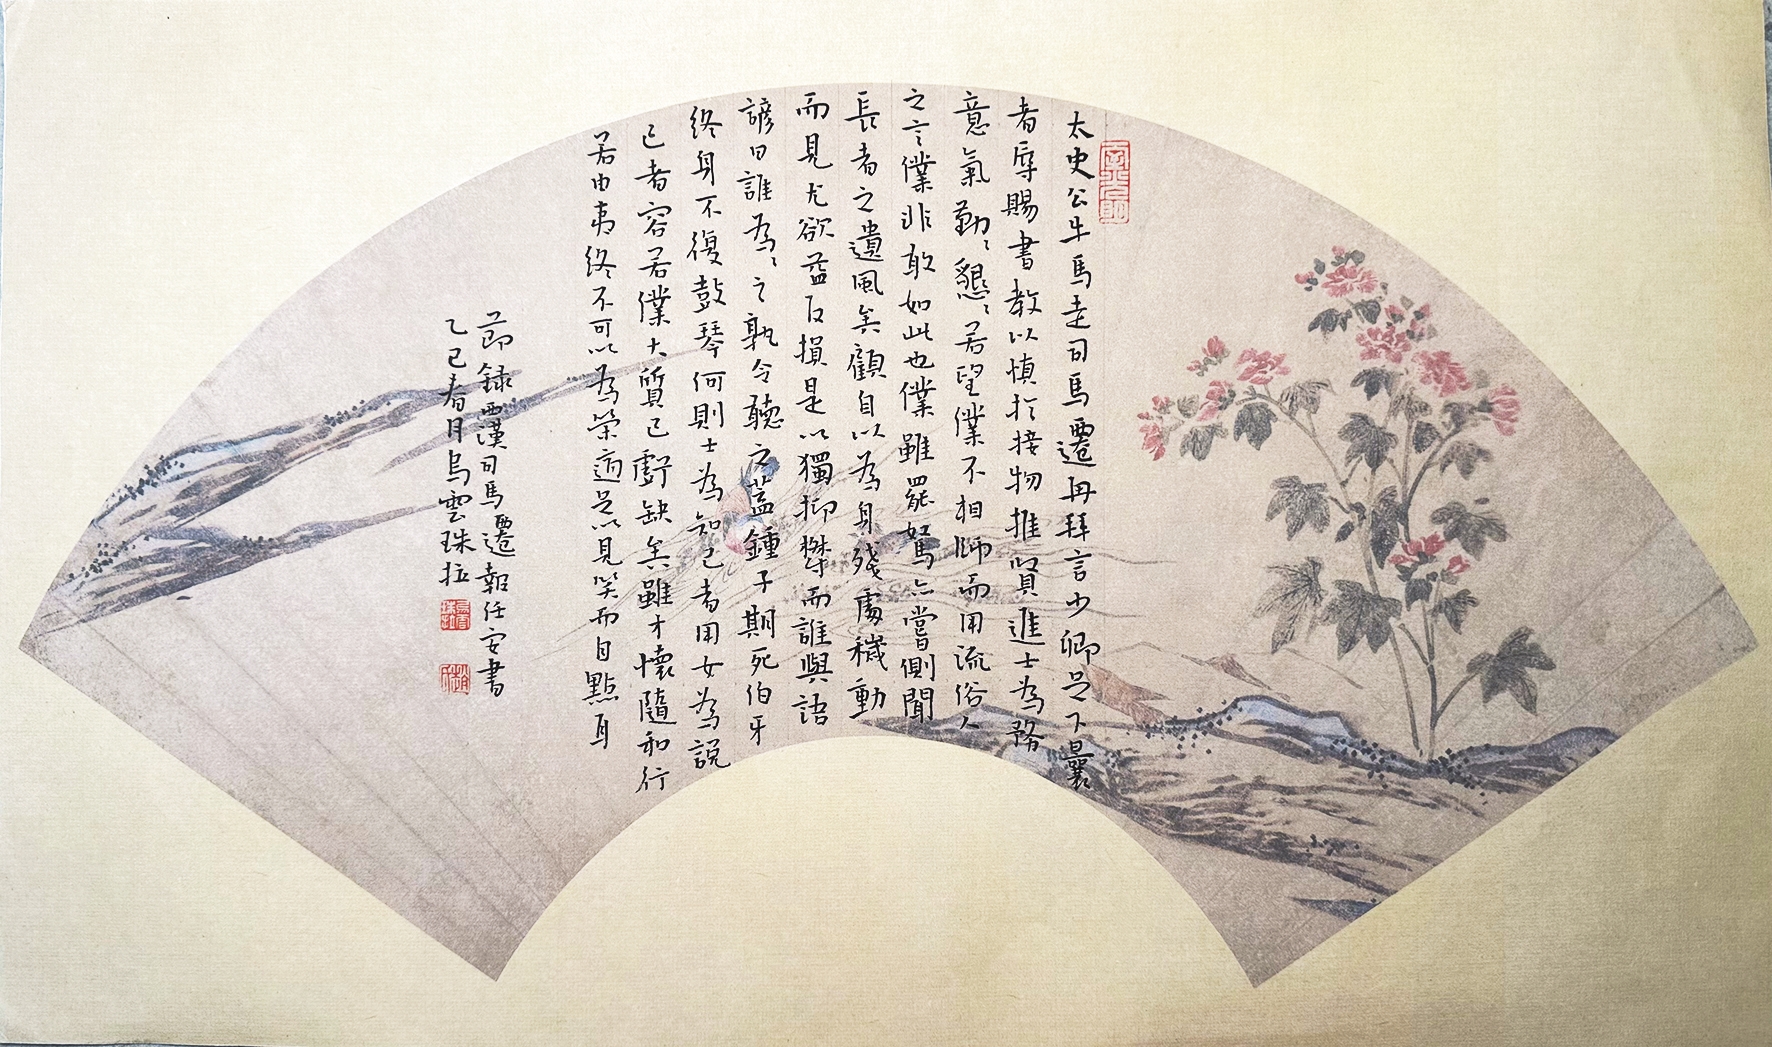 太史公牛馬走司馬遷再拜言少卿足下曩
者辱賜書教以慎於接物推賢進士為務
意氣勤〻懇〻若望僕不相師而用流俗人
之言僕非敢如此也僕雖罷駑亦嘗側聞
長者之遺風矣顧自以為身殘處穢動
而見尤欲益反損是以獨抑鬱而誰與語
諺曰誰為〻之孰令聽之蓋鍾子期死伯牙
終身不復鼓琴何則士為知己者用女為說
己者容若僕大質已虧缺矣雖才懷隨和行
若由夷終不可以為榮適足以見笑而自點耳
節録西漢司馬遷報任安書
乙巳春月烏雲珠拉